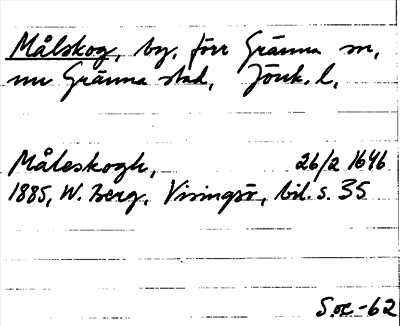 Målskog, by, förr Gränna sn,
nu Gränna stad, Jönk. l.
Måleskogh, 26/2 1646
1885, W. Berg, Visingsö, bil. s. 35
S.oc-62